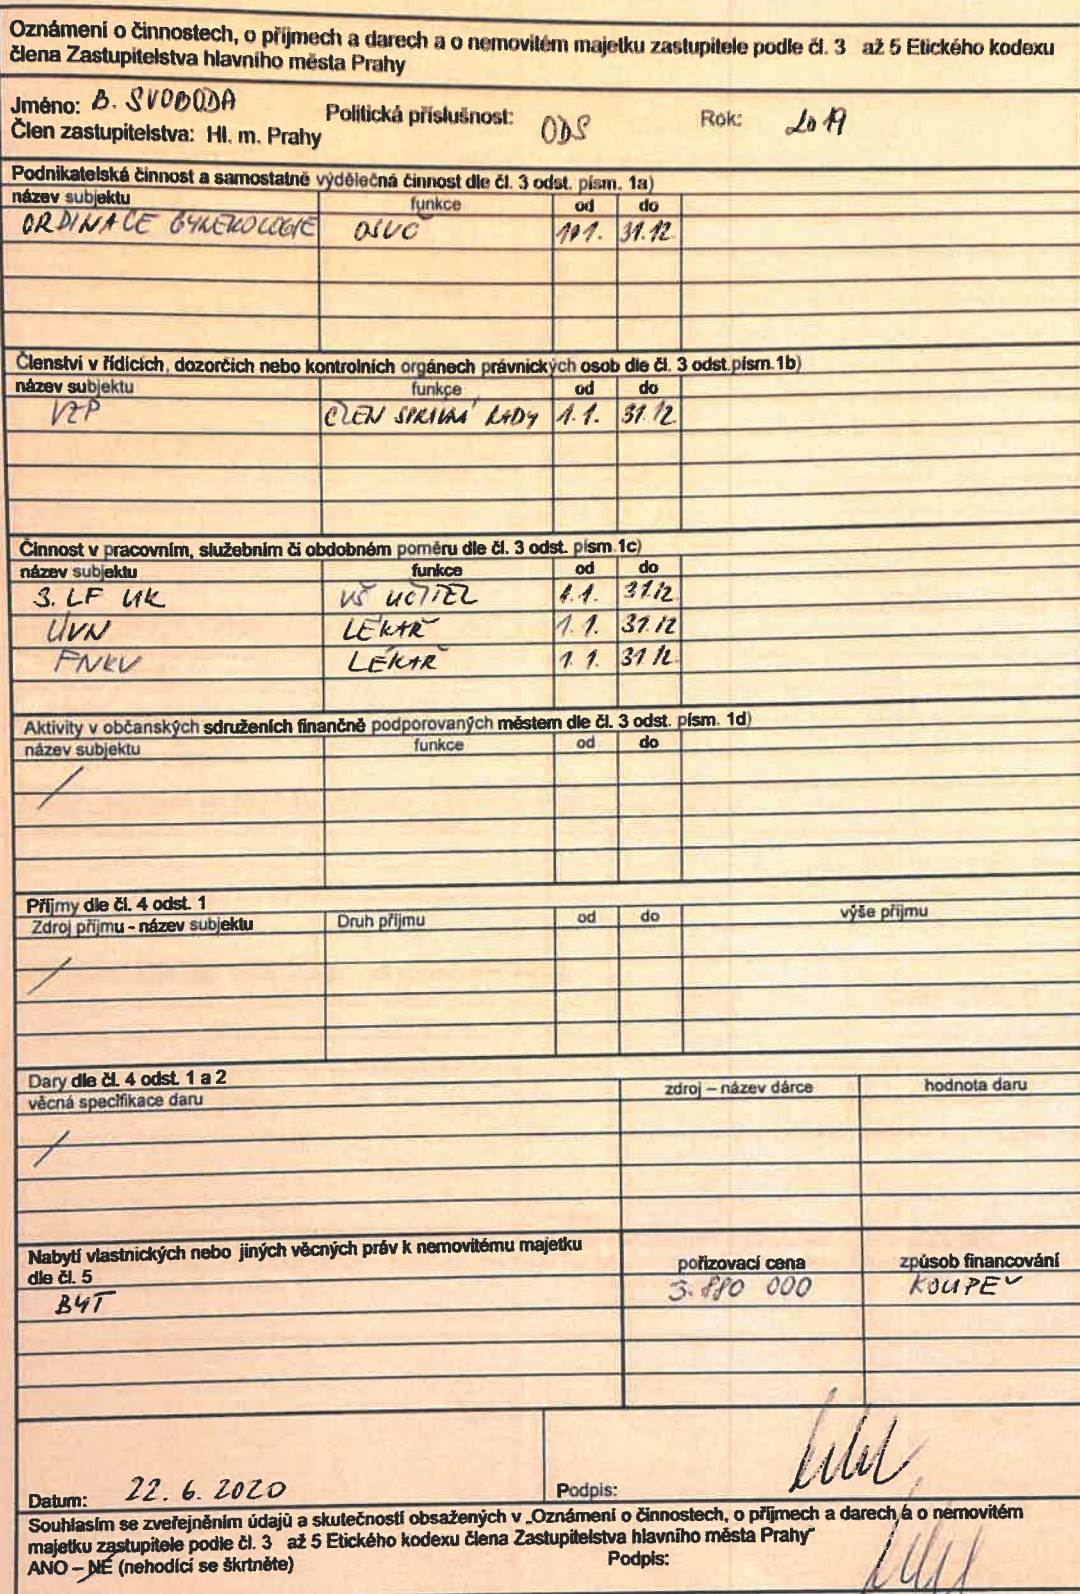 Oznámení o činnostech, o příjmech a darech a o nemovitém majetku zastupitele podle čl. 3 až 5 Etického kodexu
člena Zastupitelstva hlavního města Prahy
Jméno: B. SVOBODA Politická příslušnost: ODS Rok: 2019
Člen zastupitelstva: Hl. m. Prahy
Podnikatelská činnost a samostatně výdělečná činnost dle čl. 3 odst. písm. 1a)
název subjektu funkce od do
ORDINACE GYNEKOLOGIE OSVČ 1.1. 31.12.
Členství v řídících, dozorčích nebo kontrolních orgánech právnických osob dle čl. 3 odst.písm.1b)
název subjektu funkce od do
VZP ČLEN SPRÁVNÍ RADY 1.1. 31.12.
Činnost v pracovním, služebním či obdobném poměru dle čl. 3 odst. písm.1c)
název subjektu funkce od do
3. LF UK VŠ UČITEL 1.1. 31.12
ÚVN LÉKAŘ 1.1. 31.12
FNKV LÉKAŘ 1.1. 31.12.
Aktivity v občanských sdruženích finančně podporovaných městem dle čl. 3 odst. písm. 1d)
název subjektu funkce od do
/
Příjmy dle čl. 4 odst. 1
Zdroj příjmu - název subjektu Druh příjmu od do výše příjmu
/
Dary dle čl. 4 odst. 1 a 2
věcná specifikace daru zdroj – název dárce hodnota daru
/
Nabytí vlastnických nebo jiných věcných práv k nemovitému majetku
dle čl. 5 pořizovací cena způsob financování
BYT 3.880 000 KOUPĚ
Datum: 22. 6. 2020 Podpis:
Souhlasím se zveřejněním údajů a skutečností obsažených v „Oznámení o činnostech, o příjmech a darech a o nemovitém
majetku zastupitele podle čl. 3 až 5 Etického kodexu člena Zastupitelstva hlavního města Prahy"
ANO – NE (nehodící se škrtněte) Podpis: